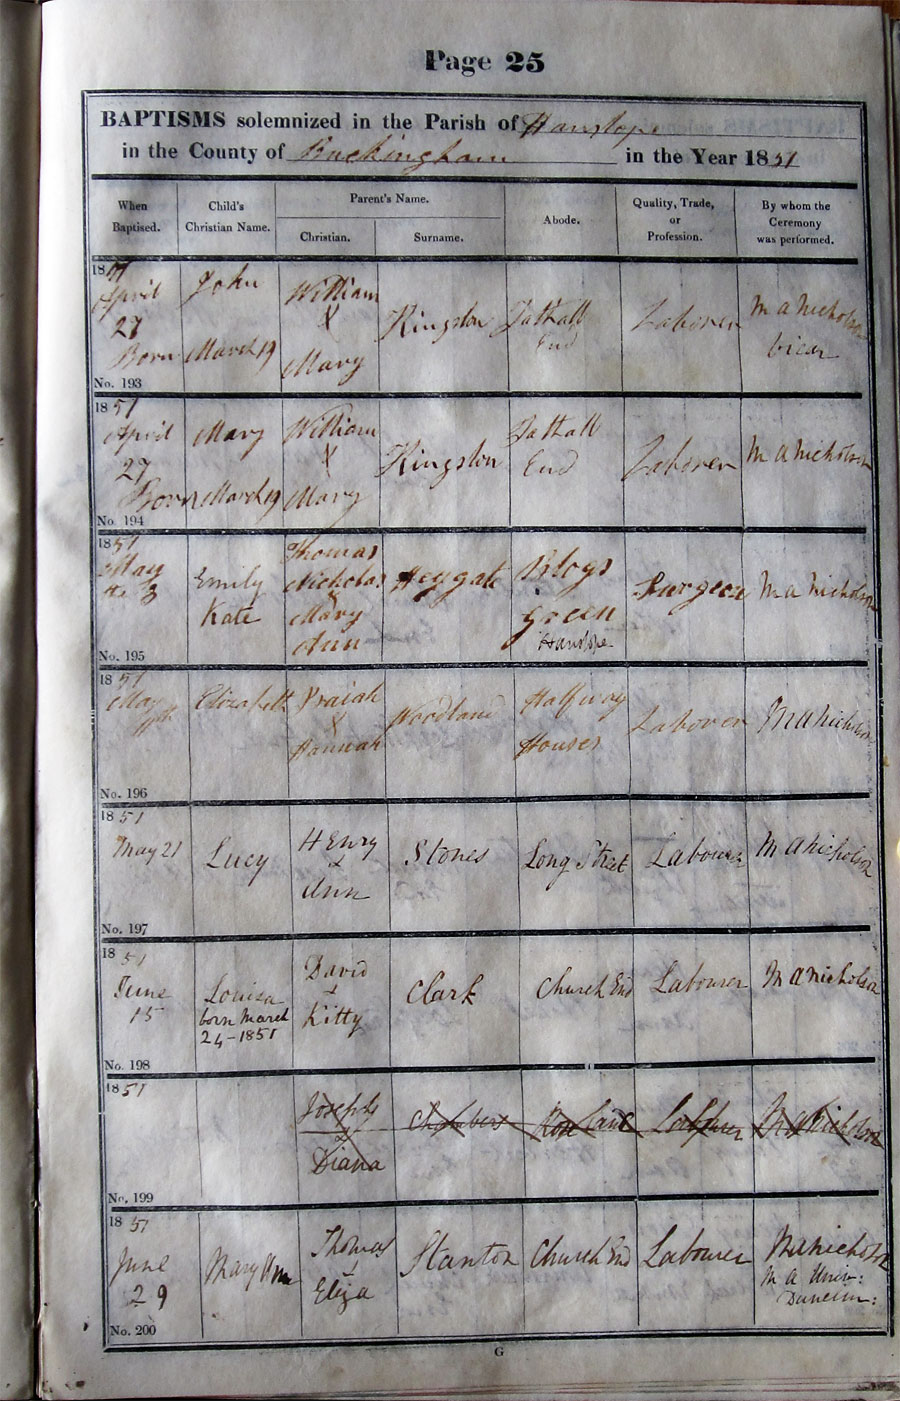 Page 25
BAPTISMS solemnized in the Parish of Hanslope
in the County of Buckingham in the Year 1851
When Baptised.
Child's Christian Name.
Parent's Name.
Christian.
Surname.
Abode.
Quality, Trade, or Profession.
By whom the Ceremony was performed.
1851
April
27
Born
No. 193
John
March 19
William
&
Mary
Kingston
Tathall
End
Laborer
M A Nicholson
Vicar
1851
April
27
Born
No. 194
Mary
March 19
William
&
Mary
Kingston
Tathall
End
Laborer
M A Nicholson
1851
May
3
No. 195
Emily
Kate
Thomas
Nicholas
&
Mary
Ann
Heygate
Green
Hanslope
Surgeon
M A Nicholson
1851
May
11th
No. 196
Elizabeth
Isaiah
&
Hannah
Woodland
Halfway
Houses
Laborer
M A Nicholson
1851
May 21
No. 197
Lucy
Henry
&
Ann
Stones
Long Street
Labourer
M A Nicholson
1851
June
15
No. 198
Louisa
born March
24-1851
David
&
Kitty
Clark
Church End
Labourer
M A Nicholson
1851
No. 199
Joseph
&
Diana
Chambers
Lane
Labourer
M A Nicholson
1851
June
29
No. 200
Mary Ann
Thomas
&
Eliza
Stanton
Church End
Labourer
M A Nicholson
M A Univ:
Dunelm:
G